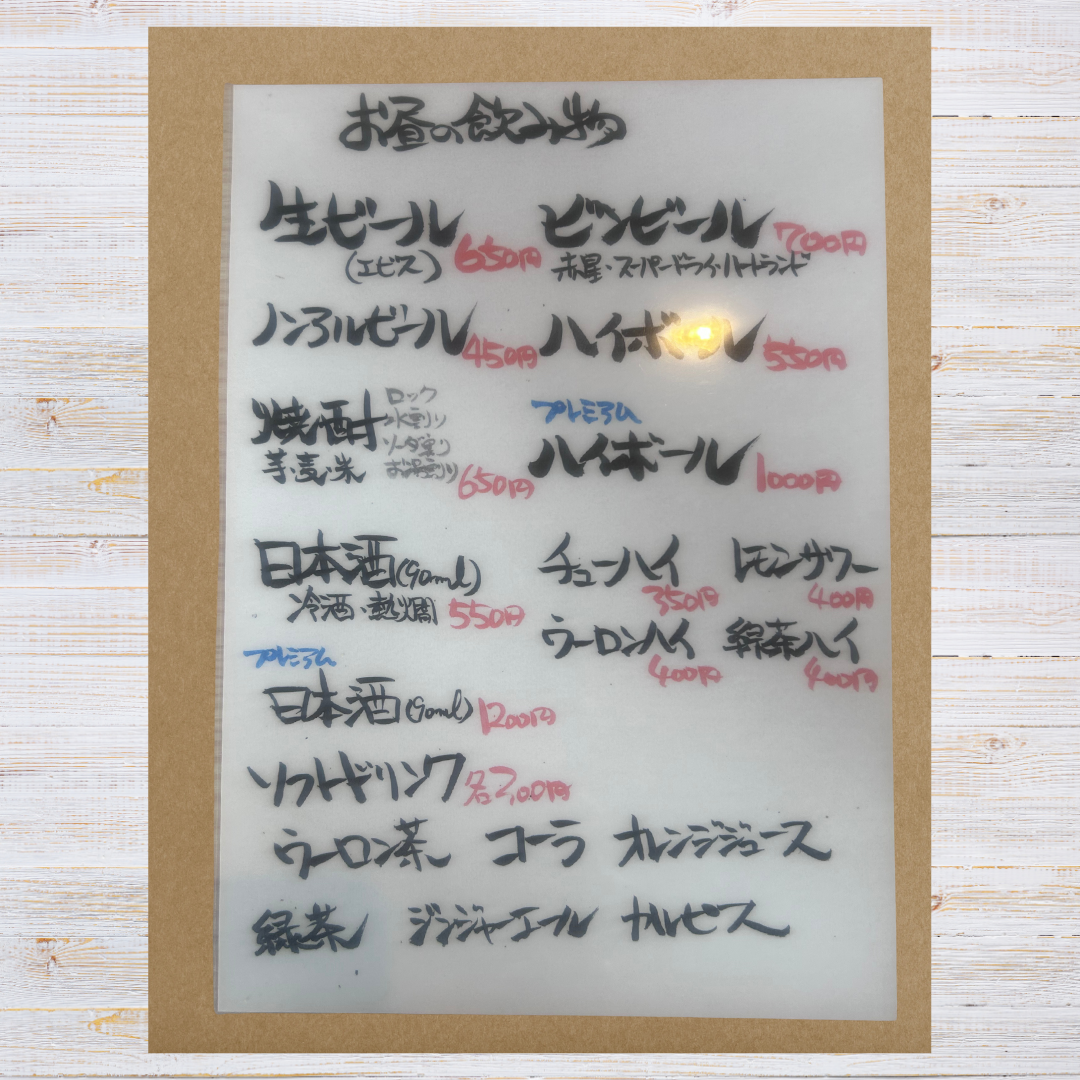 お昼の飲み物
生ビール 650円
(エビス)
ビンビール 700円
赤星・スーパードライ・ハートランド
ノンアルビール 450円
ハイボール 550円
焼酎 ロック 水割り ソーダ割り お湯割り
芋・麦・米 650円
プレミアム
ハイボール 1000円
日本酒(90ml)
冷酒・熱燗 550円
チューハイ 350円
レモンサワー 400円
ウーロンハイ 400円
緑茶ハイ 400円
プレミアム
日本酒(90ml) 1200円
ソフトドリンク 各200円
ウーロン茶 コーラ オレンジジュース
緑茶 ジンジャーエール カルピス